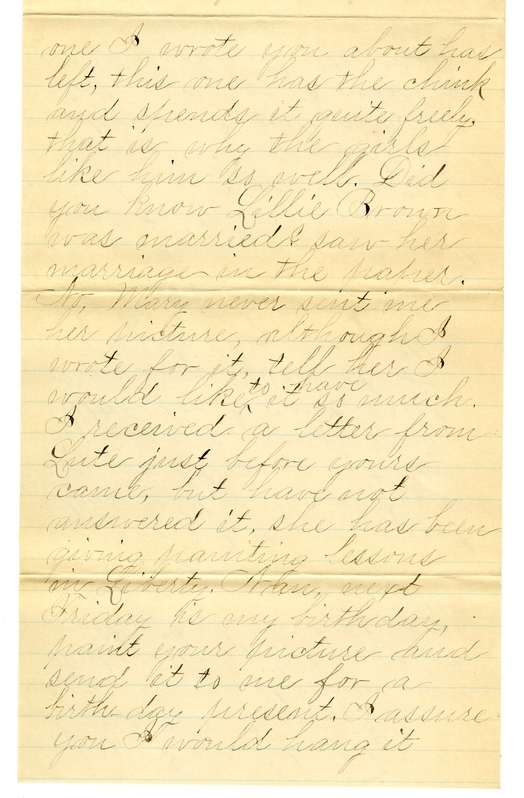 one I wrote you about has
left, this one has the chink
and spends it quite freely,
that is why the girls
like him so well. Did
you know Lillie Brown
was married? saw her
marriage in the paper.
No, Mary never sent me
her picture, although I
wrote for it, tell her I
would like to have it so much.
I received a letter from
Lute just before yours
came, but have not
answered it, she has been
giving painting lessons
in Liberty. Nan, next
Friday is my birthday,
paint your picture and
send it to me for a
birth day present. I assure
you I would hang it